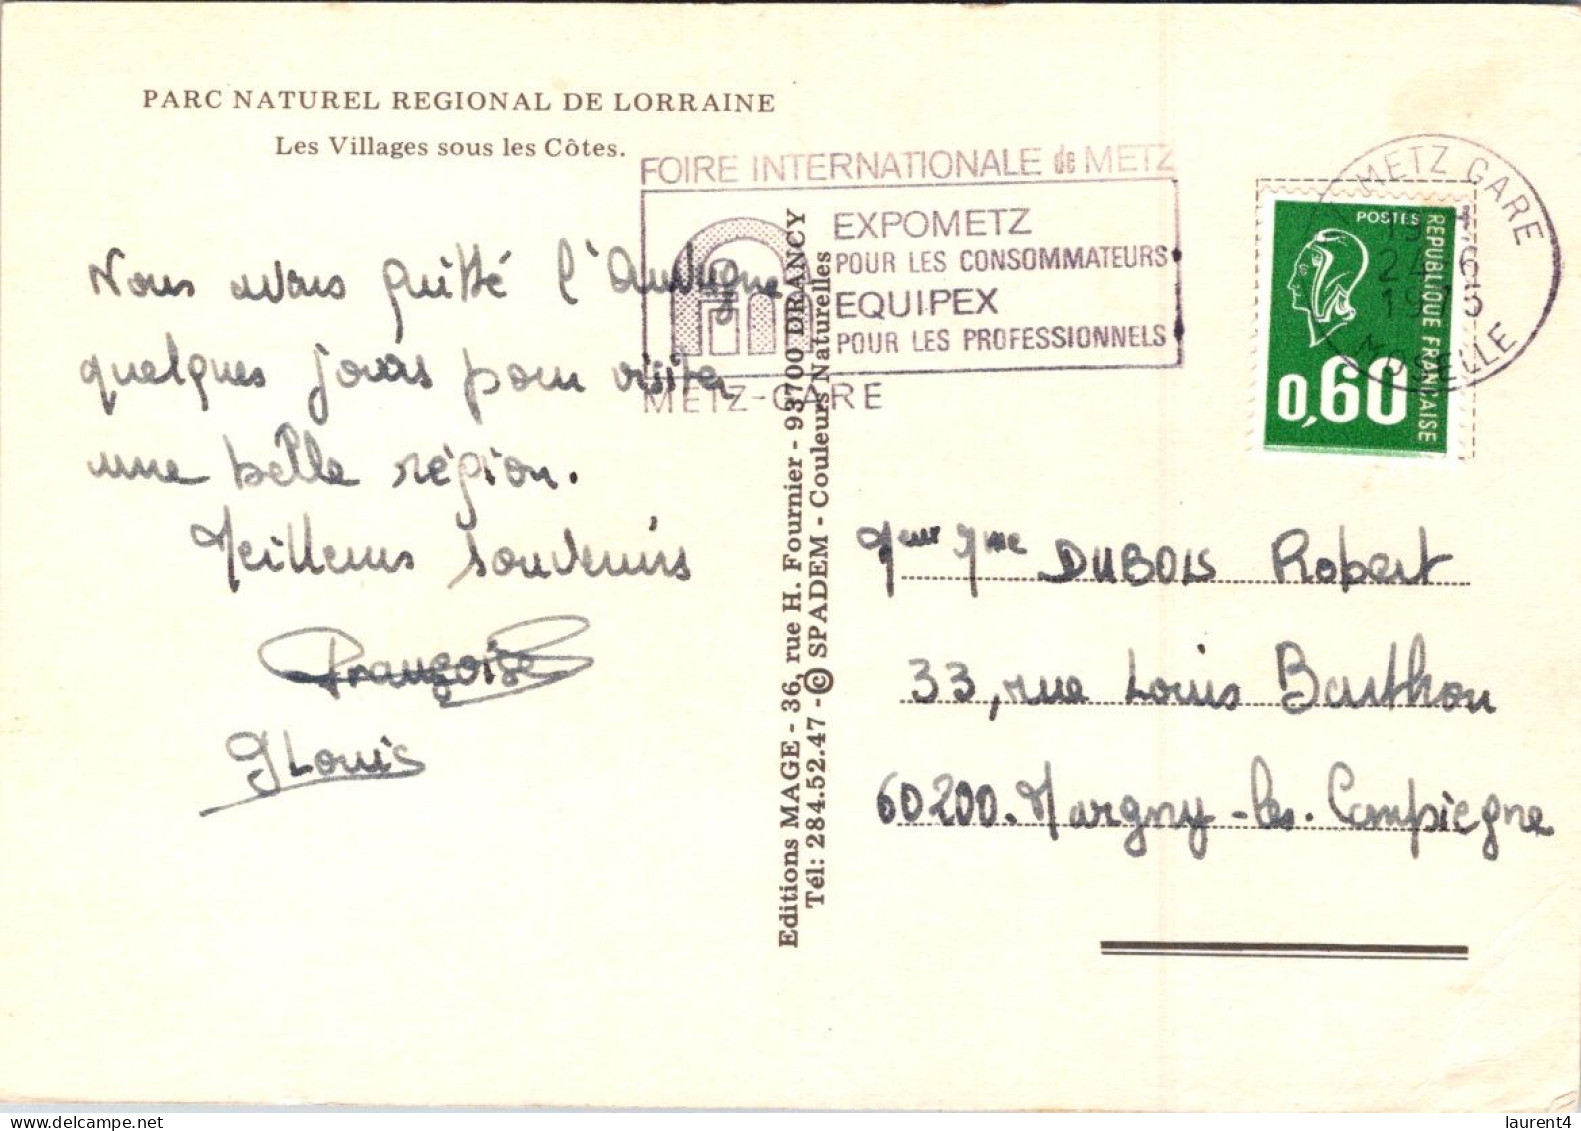 PARC NATUREL REGIONAL DE LORRAINE
Les Villages sous les Côtes.
FOIRE INTERNATIONALE de METZ
EXPOMETZ
POUR LES CONSOMMATEURS
EQUIPEX
POUR LES PROFESSIONNELS
METZ-GARE
METZ GARE
24-6
MOSELLE
POSTES
REPUBLIQUE FRANÇAISE
0,60
Nous avons quitté l'Auvergne
quelques jours pour visiter
une belle région.
Meilleurs souvenirs
Françoise
JLouis
Editions MAGE - 36, rue H. Fournier - 93700 DRANCY
Tél: 284.52.47 - © SPADEM - Couleurs Naturelles
Meur Mme DUBOIS Robert
33, rue Louis Barthou
60200. Margny-les-Compiegne
laurent4